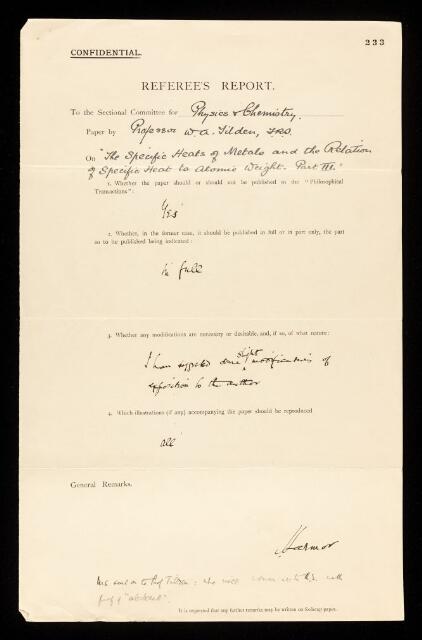 233
CONFIDENTIAL.
REFEREE'S REPORT.
To the Sectional Committee for Physics & Chemistry.
Paper by Professor W. A. Tilden, F.R.S.
On "The Specific Heats of Metals and the Relation
of Specific Heat to Atomic Weight. Part III."
1. Whether the paper should or should not be published in the "Philosophical
Transactions":
Yes
2. Whether, in the former case, it should be published in full or in part only, the part
so to be published being indicated:
in full
3. Whether any modifications are necessary or desirable, and, if so, of what nature:
I have suggested some slight modifications of
exposition to the author
4. Which illustrations (if any) accompanying the paper should be reproduced
all
General Remarks.
J Larmor
to Prof Tilden: who will with
proof of "abstract".
It is requested that any further remarks may be written on foolscap paper.